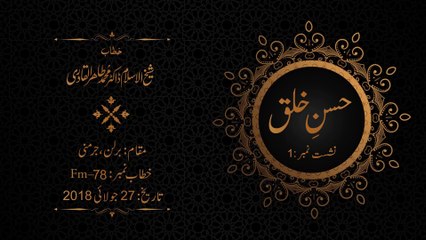 حسنِ خلق
نشست نمبر: 1
خطاب
شیخ الاسلام ڈاکٹر محمد طاہر القادری
مقام: برلن، جرمنی
خطاب نمبر: Fm-78
تاریخ: 27 جولائی 2018